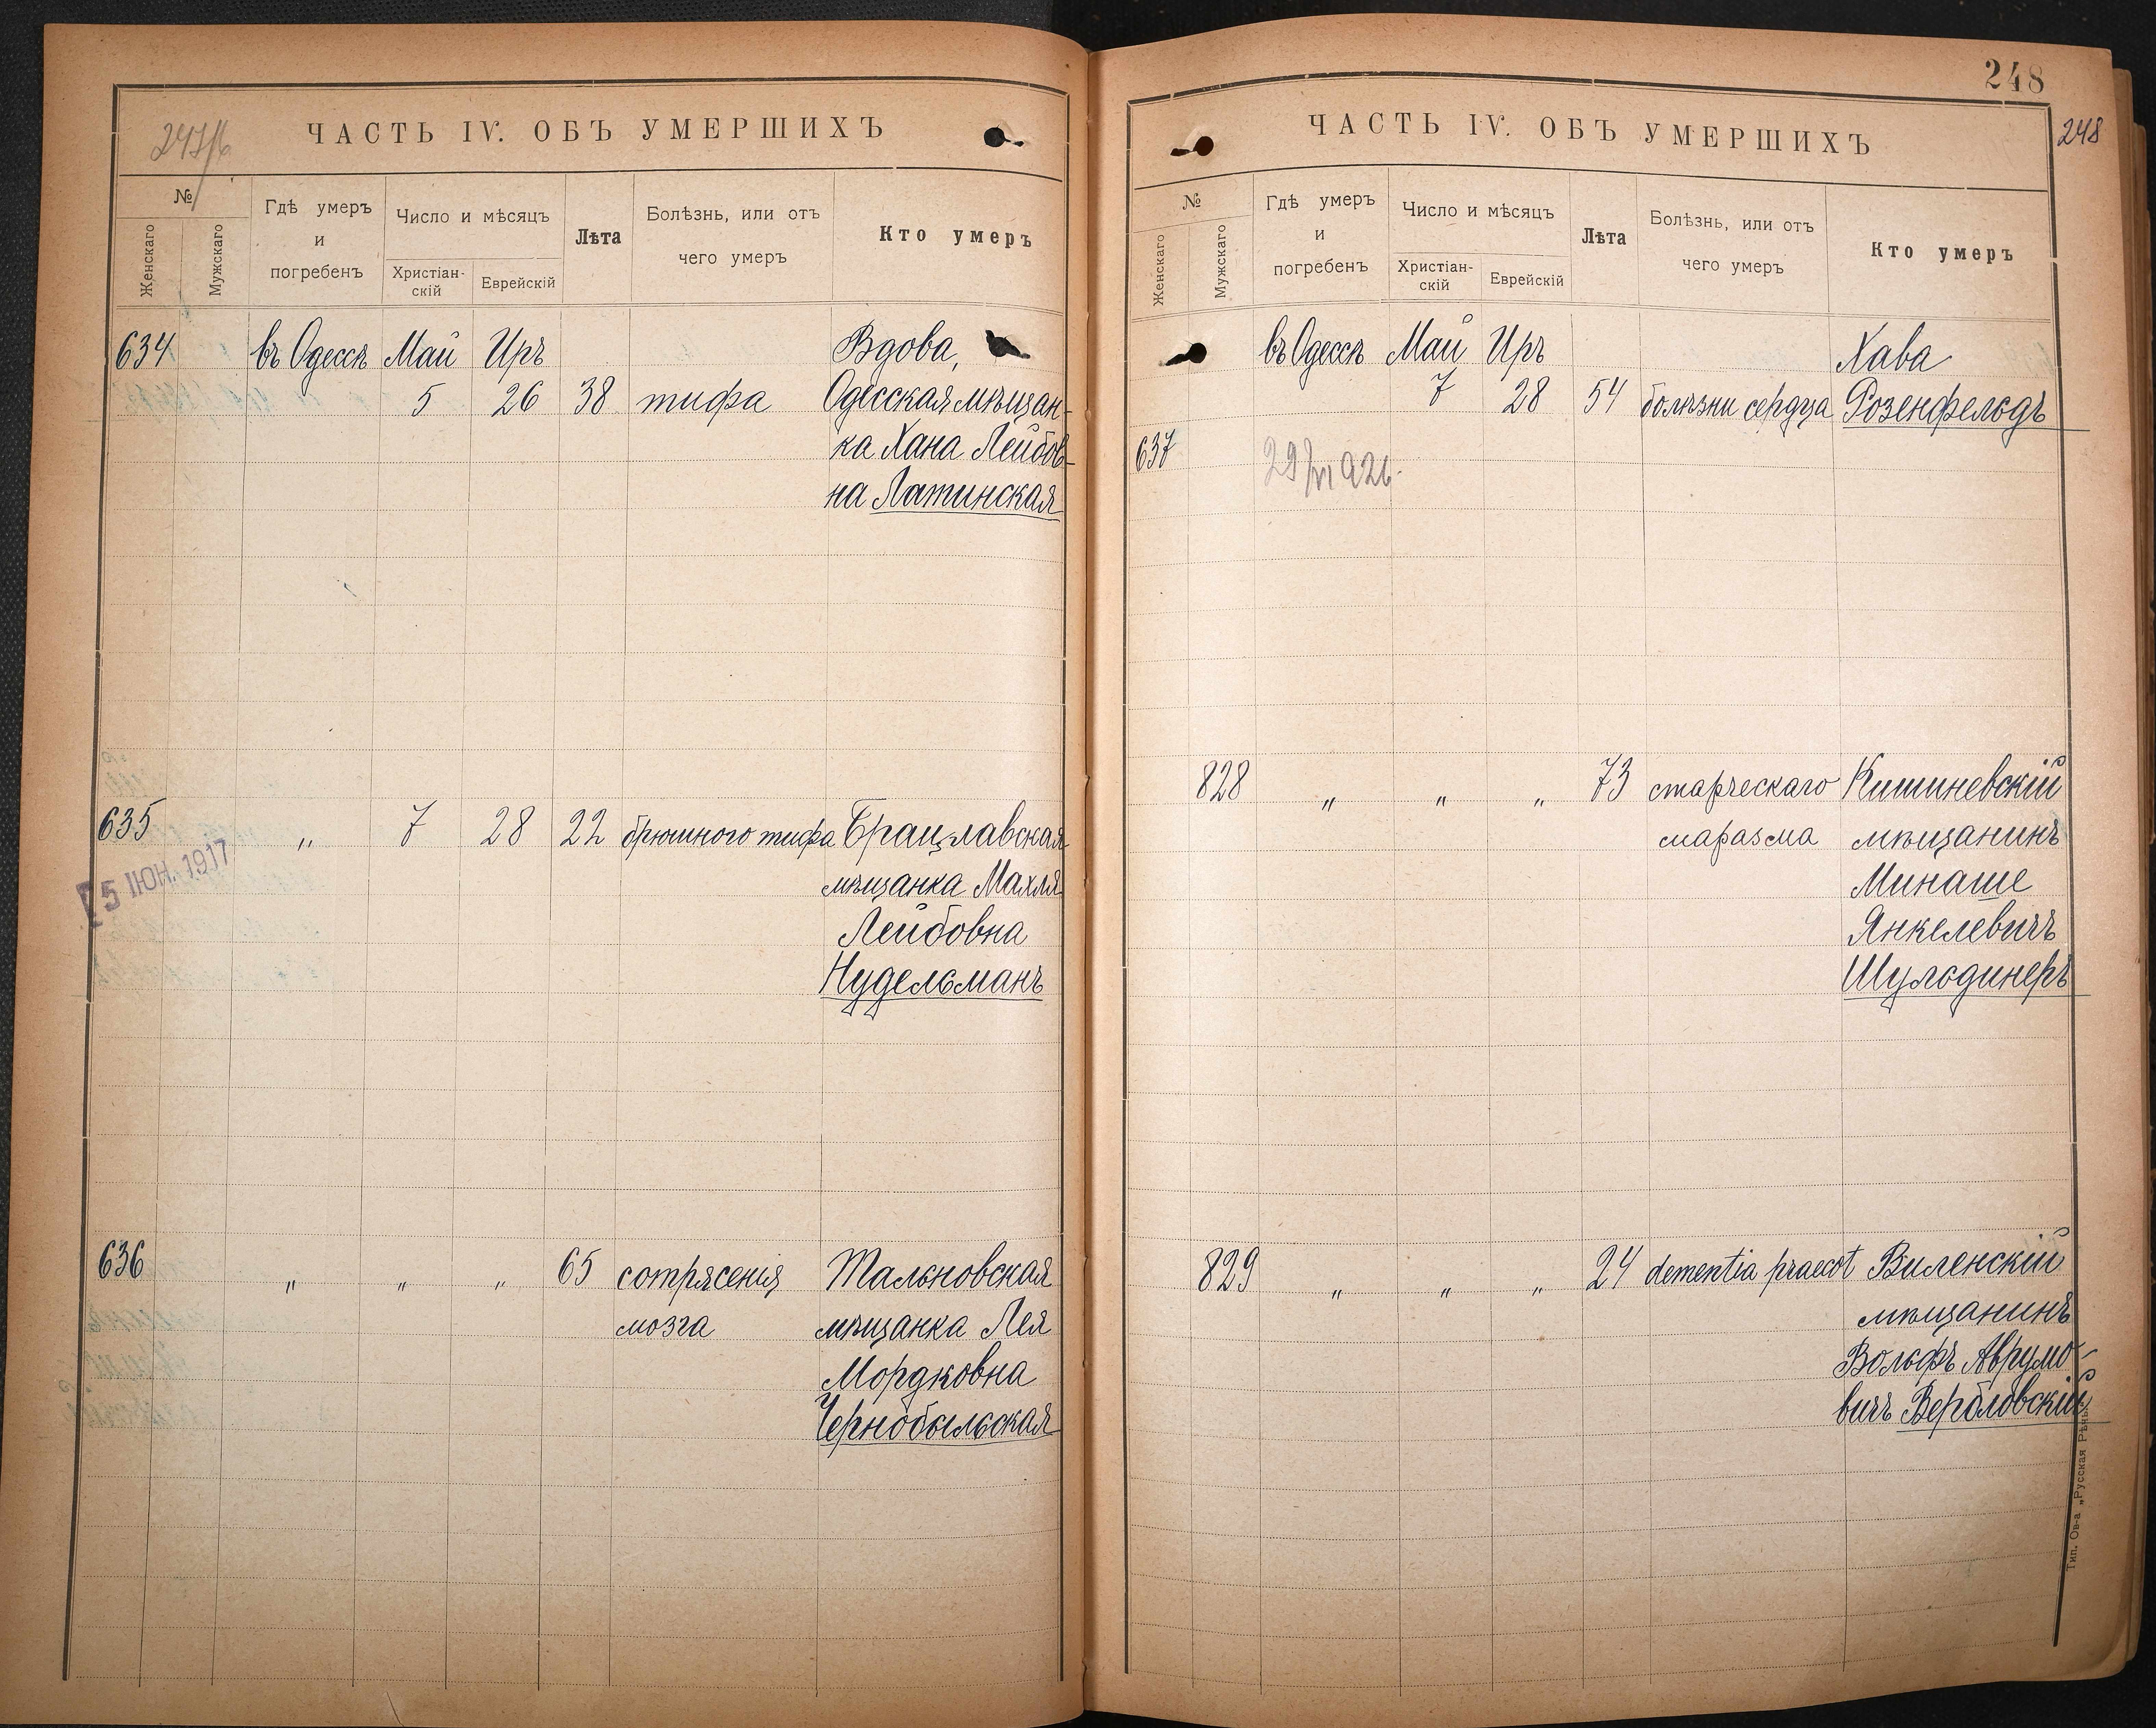 247/б
ЧАСТЬ IV. ОБЪ УМЕРШИХЪ
№
Женскаго
Мужскаго
Гдѣ умеръ
и
погребенъ
Число и мѣсяцъ
Христіан-
скій
Еврейскій
Лѣта
Болѣзнь, или отъ
чего умеръ
Кто умеръ
634 въ Одессѣ Май Иръ Вдова,
5 26 38 тифа Одесская мѣщан-
ка Хана Лейбов-
на Латинская
635 " 7 28 22 брюшного тифа Брацлавская
5 ІЮН. 1917
мѣщанка Махля
Лейбовна
Нудельманъ
636 " " " 65 сотрясенія Тальновская
мозга мѣщанка Лея
Мордковна
Чернобыльская
248
248
ЧАСТЬ IV. ОБЪ УМЕРШИХЪ
№
Женскаго
Мужскаго
Гдѣ умеръ
и
погребенъ
Число и мѣсяцъ
Христіан-
скій
Еврейскій
Лѣта
Болѣзнь, или отъ
чего умеръ
Кто умеръ
въ Одессѣ Май Иръ Хава
7 28 54 болѣзни сердца Розенфельдъ
637
29/VI 926.
828 " " " 73 старческаго Кишиневскій
маразма мѣщанинъ
Минаше
Янкелевичъ
Шульдинеръ
829 " " " 24 dementia praecot Виленскій
мѣщанинъ
Вольфъ Аврумо-
вичъ Вербловскій
Тип. Ов-а „Русская Рѣчь"